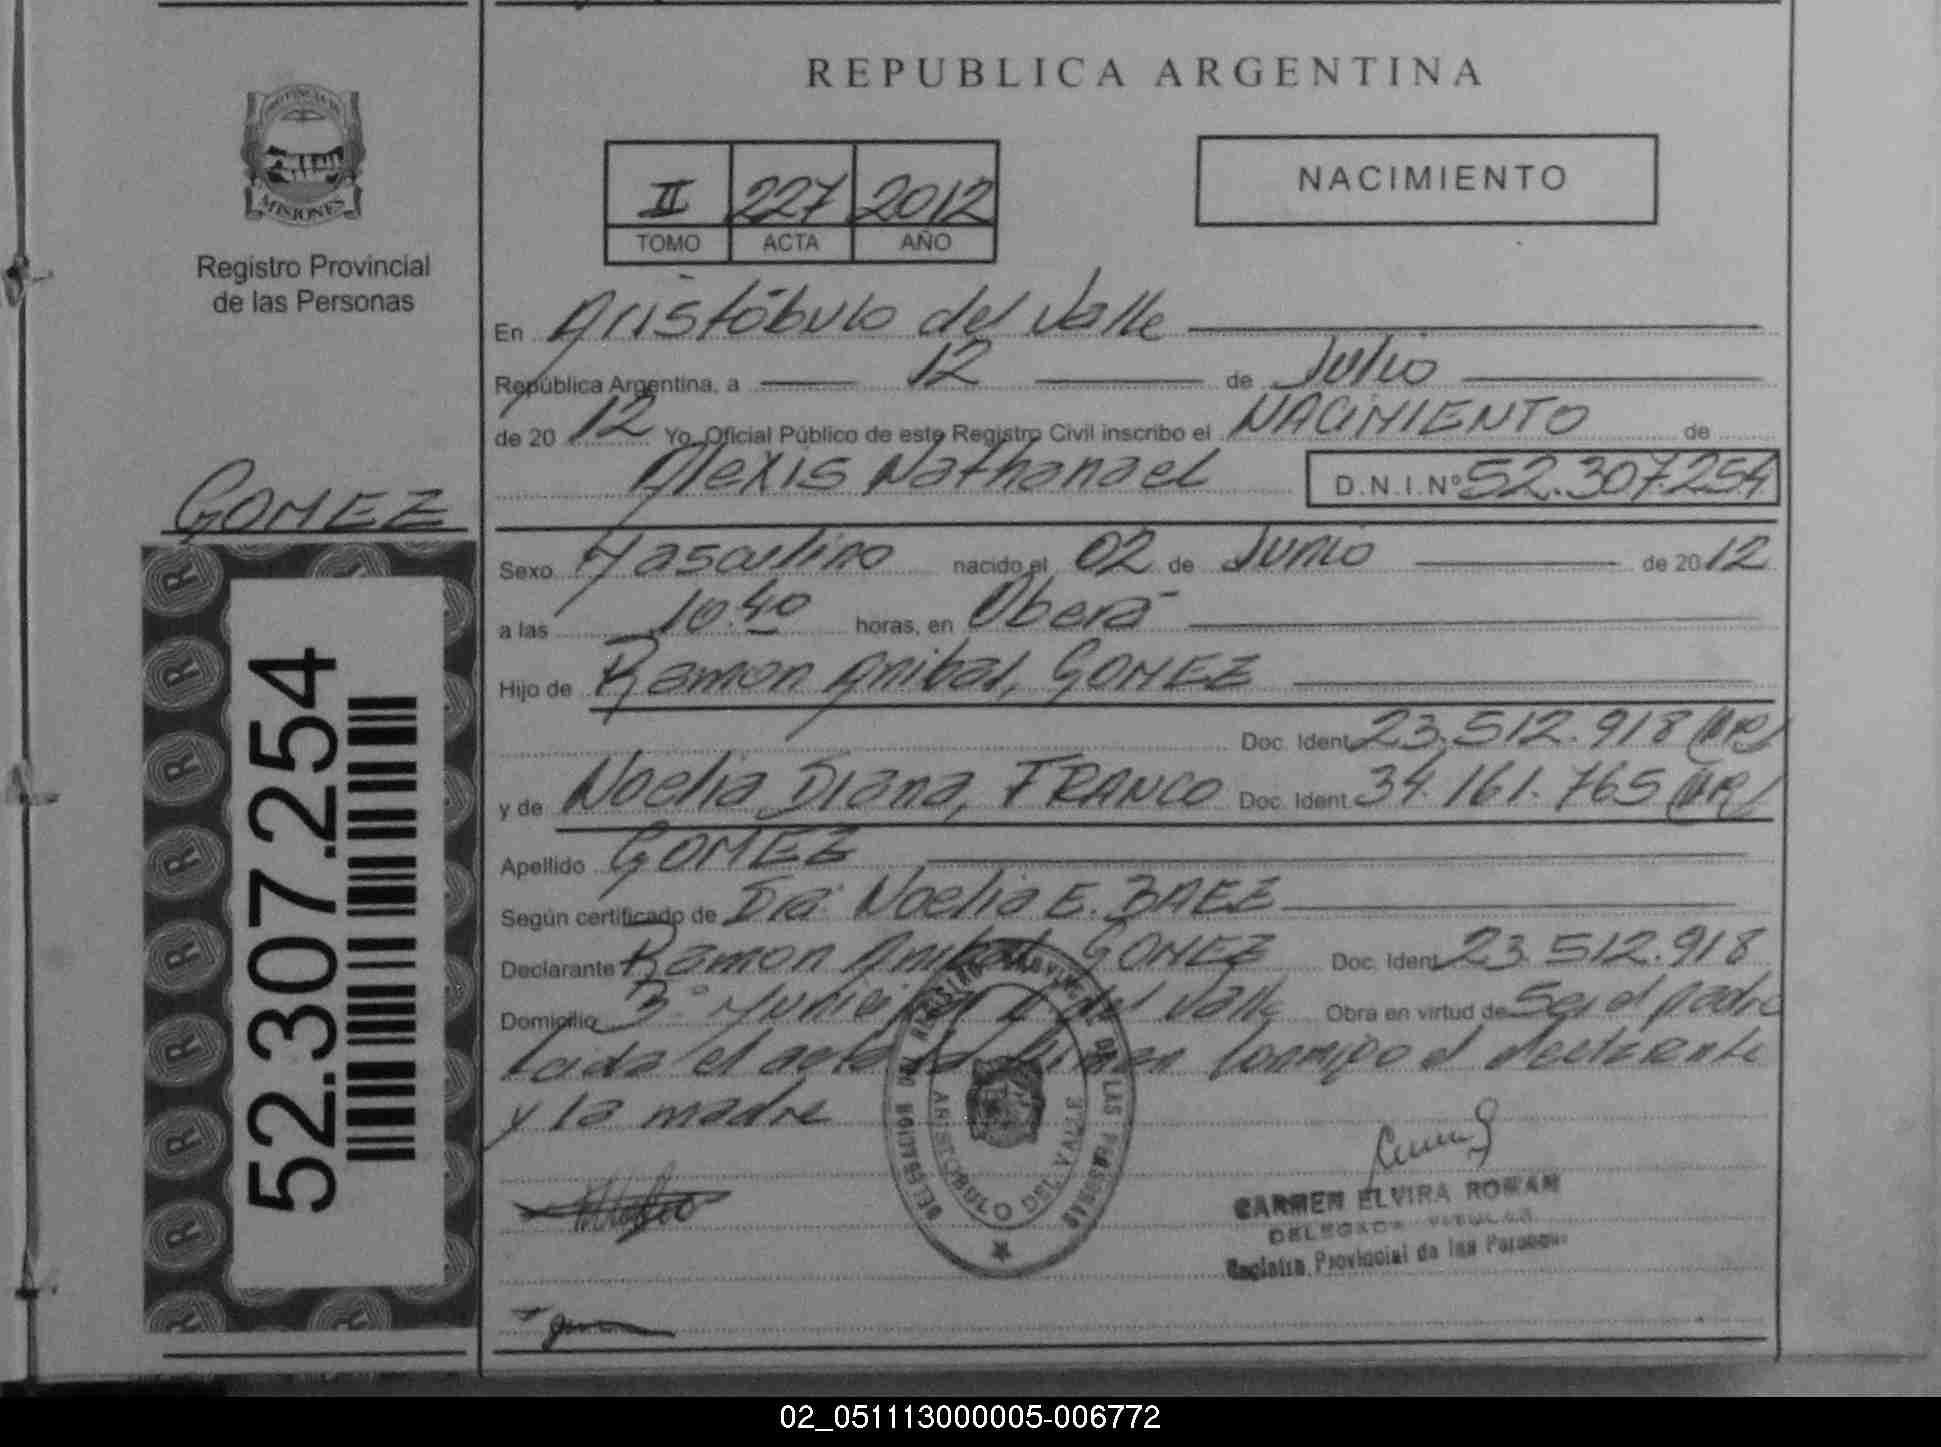 REPUBLICA ARGENTINA
PROVINCIA DE
MISIONES
Registro Provincial
de las Personas
II 227 2012
TOMO ACTA AÑO
NACIMIENTO
En Aristóbulo del Valle
República Argentina, a 12 de Julio
de 2012 Yo, Oficial Público de este Registro Civil inscribo el NACIMIENTO de
Alexis Nathanael D.N.I.Nº 52.307.254
GOMEZ
Sexo Masculino nacido el 02 de Junio de 2012
a las 10:40 horas, en Oberá
Hijo de Ramon Anibal, GOMEZ
Doc. Ident. 23.512.918 (AR)
y de Noelia Diana, FRANCO Doc. Ident. 34.161.765 (AR)
Apellido GOMEZ
Según certificado de Dra. Noelia E. BAEZ
Declarante Ramon Anibal GOMEZ Doc. Ident. 23.512.918
Domicilio B° Municipal A. del Valle Obra en virtud de Ser el padre
Leida el acta la firman conmigo el declarante
y la madre
52.307.254
DELEGACION DEL REGISTRO PROVINCIAL DE LAS PERSONAS
ARISTOBULO DEL VALLE
CARMEN ELVIRA ROMAN
DELEGADA TITULAR
Registro Provincial de las Personas
02_051113000005-006772